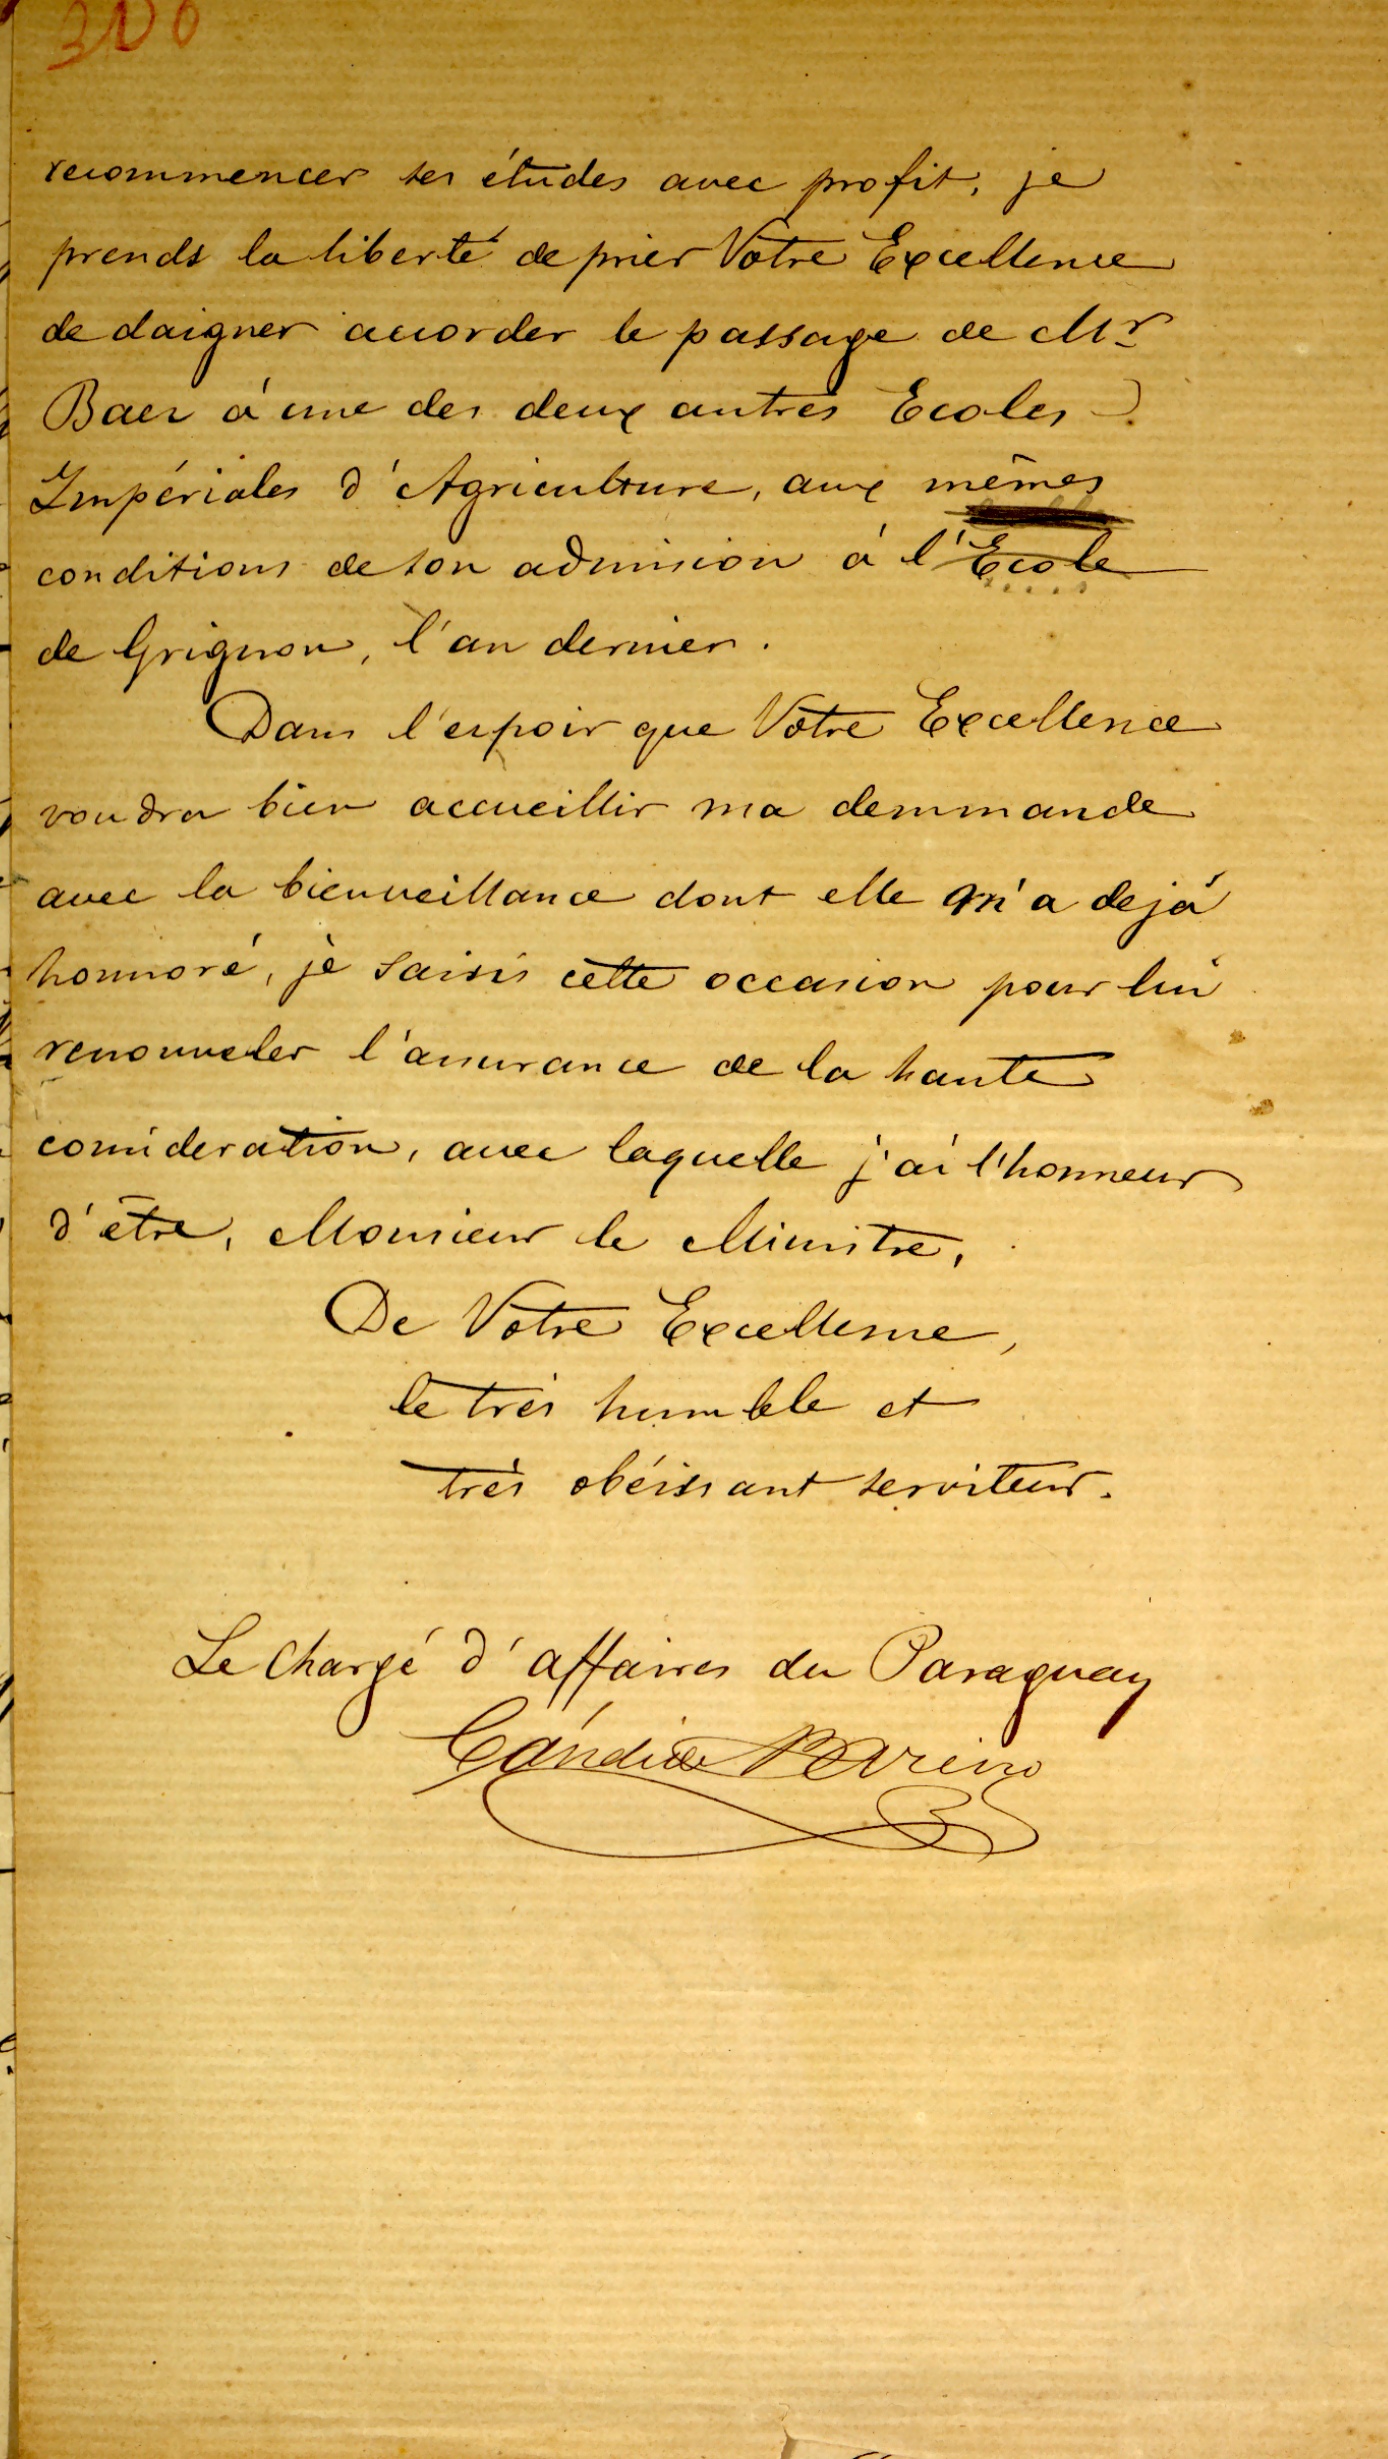 300
recommencer ses études avec profit, je
prends la liberté de prier Votre Excellence
de daigner accorder le passage de Mr
Baer á une des deux autres Ecoles
Impériales d'Agriculture, aux mêmes
conditions de son admission á l'Ecole
de Grignon, l'an dernier.
Dans l'espoir que Votre Excellence
voudra bien accueillir ma demmande
avec la bienveillance dont elle m'a dejá
honnoré, je saisis cette occasion pour lui
renouveler l'assurance de la haute
consideration, avec laquelle j'ai l'honneur
d'être, Monsieur le Ministre,
De Votre Excellence,
le trés humble et
trés obéissant serviteur.
Le Chargé d'affaires du Paraguay
Cándido Bareiro